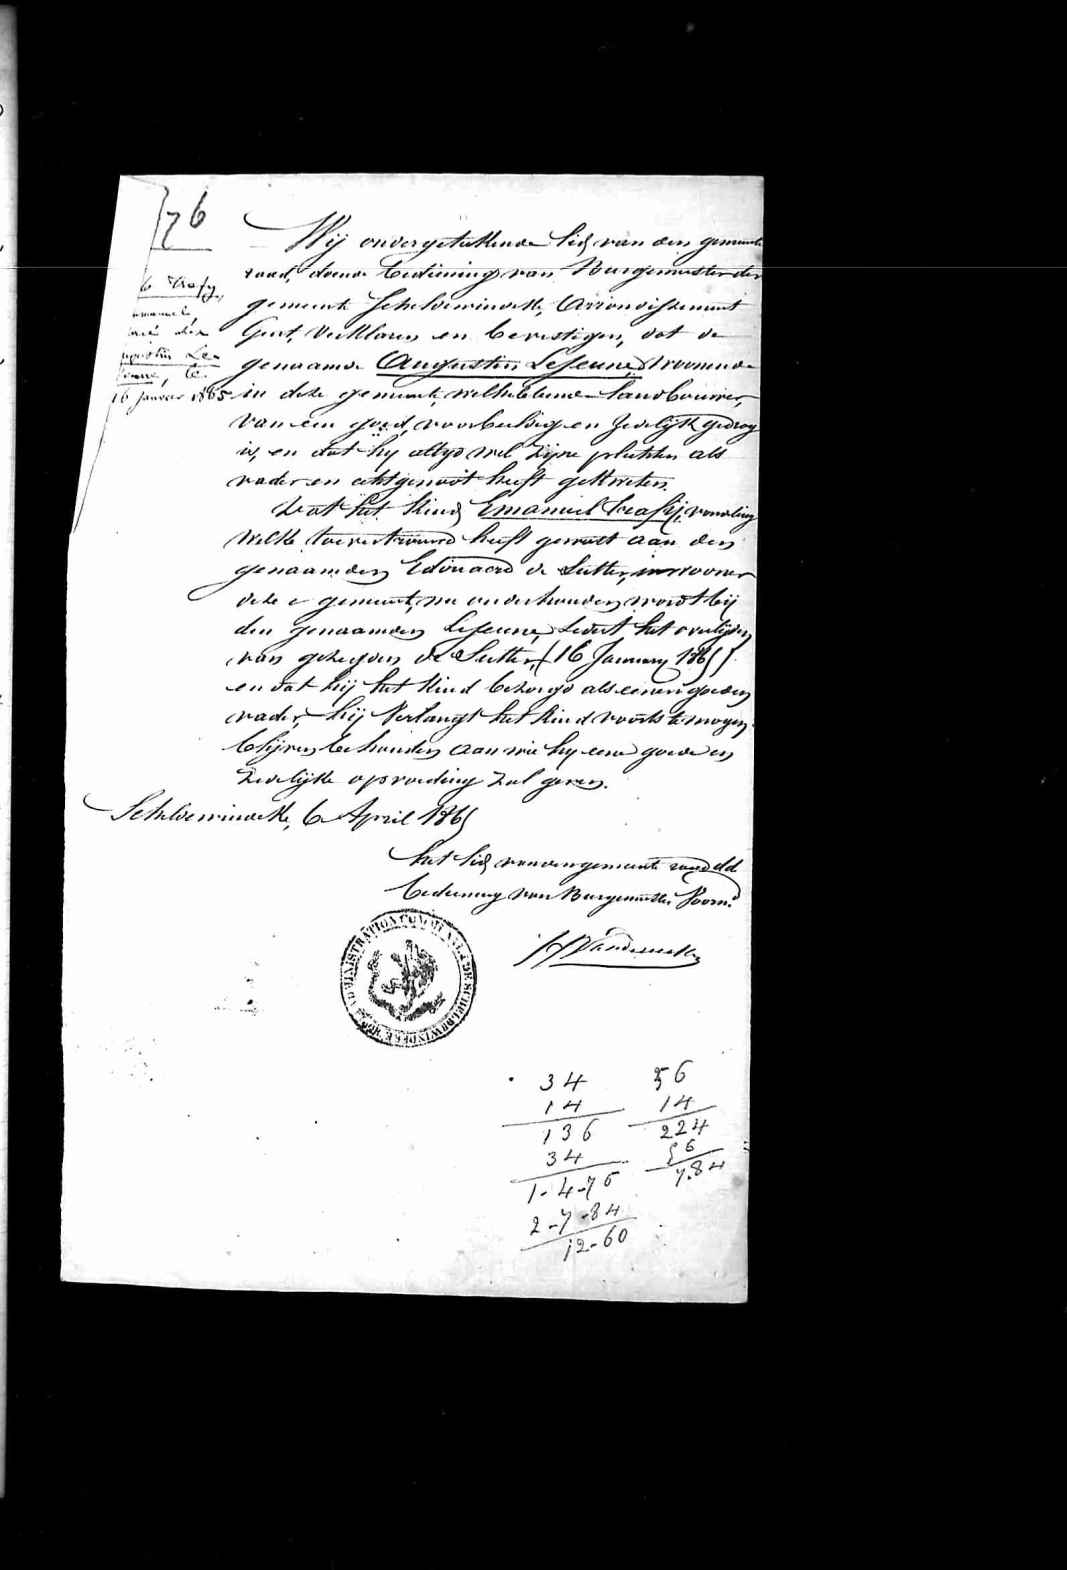 76
Wij ondergeteekende Lid van den gemeente
raad, doende bediening van Burgemeester der
gemeente Schelderwindeke, Arrondissement
Gent, Verklaren en bevestigen, dat de
genaamde Augustin LeJeune, Woonende
in deze gemeente, welhebbende Landbouwer,
van een goed, voorbeeldig en Zedelijk gedrag
is, en dat hij altyd wel Zijne plichten als
vader en echtgenoot heeft gekweten.
Dat het Kind Emanuel Trassy, vondeling
Welke toevertrouwd heeft geweest aan den
genaamden Edouard de Sutter, inwooner
deze gemeente, nu onderhouden wordt bij
den genaamden LeJeune, Sedert het overlijden
van gezeyden De Sutter, (16 January 1865)
en dat hij het Kind bezorgd als eenen goeden
vader, hij Verlangt het Kind voorts te mogen
blijven behouden aan wie hy eene goede en
Zedelijke opvoeding zal geven.
le Trasy,
Emanuel,
placé chez
Augustin Le-
Jeune, le
16 janvier 1865
Schelderwindeke, 6 April 1865
het Lid van den gemeente raad dd
bediening van Burgemeester Voorn.
ADMINISTRATION COMMUNALE DE SCHELDEWINDEKE
34
14
136
34
1-4-76
2-7-84
12-60
56
14
224
56
7.84